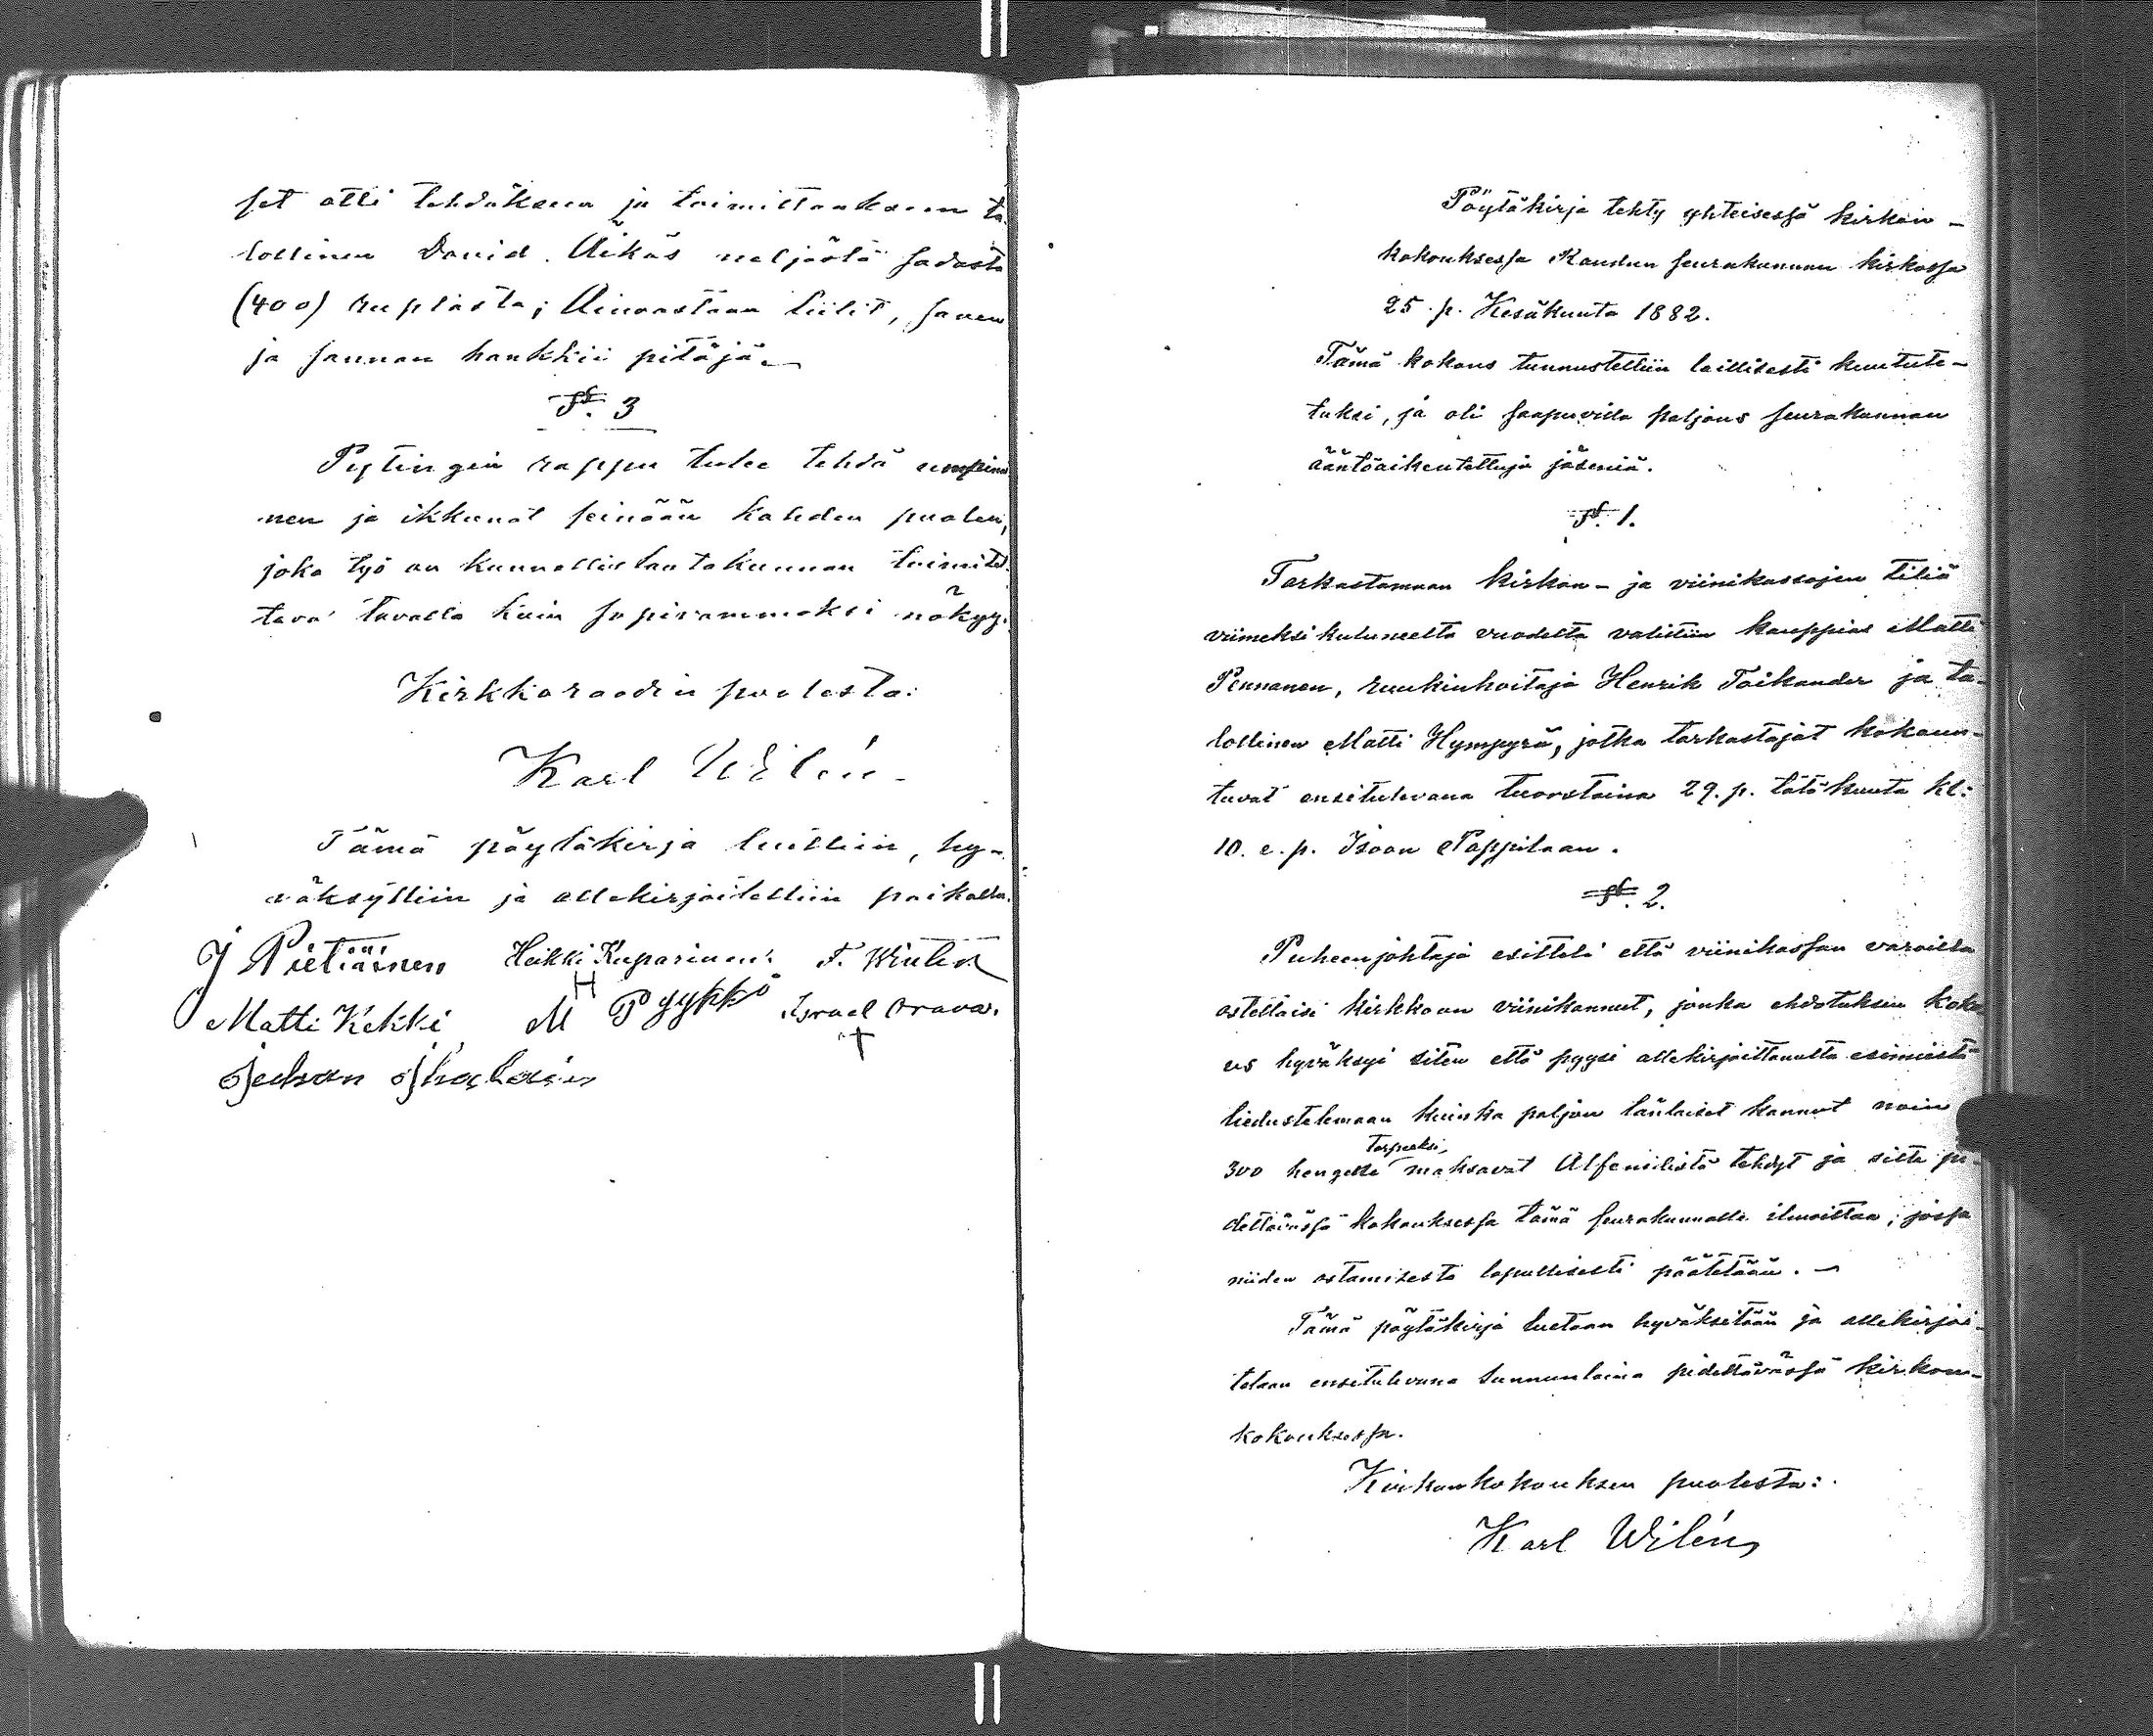 set otti tehdäksen ja toimittaaksen ta-
lollinen David Äikäs neljästä sadasta
(400) ruplasta; Ainoastaan tiilit, saven
ja sannan hankkii pitäjä.
§. 3
Pytingin rappu tulee tehdä umpinai
nen ja ikkunat seinään kahden puolen,
joka työ on kunnallislautakunnan toimitet
tava tavalla kuin sopivammaksi näkyy.
Kirkkoraadin puolesta:
Karl Wilén
Tämä pöytäkirja luettiin, hy-
väksyttiin ja allekirjoitettiin paikalla.
J Pietiäinen Heikki Kuparinen F. Winter
Matti Kekki M Pyykkö Israel Orava.
H +
Juhan
Pöytäkirja tehty yhteisessä kirkon-
kokouksessa seurakunnan kirkossa
25 p. Kesäkuuta 1882.
Tämä kokous tunnustettiin laillisesti kuulute-
tuksi, ja oli saapuvilla paljous seurakunnan
ääntöoikeutettuja jäseniä.
§. 1.
Tarkastamaan kirkon- ja viinikassojen tiliä
viimeksi kuluneelta vuodelta valittiin kauppias Matti
Pennanen, ruukinhoitaja Henrik Toikander ja ta-
lollinen Matti Hymppyrä, jotka tarkastajat kokoun-
tuvat ensitulevana tuorstaina 29. p. tätä kuuta kl:
10. e. p. Isoon Pappilaan.
§. 2.
Puheenjohtaja esitteli että viinikassan varoilla
ostettaisi kirkkoon viinikannut, jonka ehdotuksen koko
us hyväksyi siten että pyysi allekirjoittanutta esimiestä
tiedustelemaan kuinka paljon länlaiset kannut noin
Tarpeeksi,
300 hengelle maksavat Alfenidistä tehdyt ja sitte pi-
dettävässä kokouksessa tämä seurakunnalle ilmoittaa, jossa
niiden ostamisesta lopullisesti päätetään.
Tämä pöytäkirja luetaan hyväksytään ja allekirjoi-
tetaan ensitulevana sunnuntaina pidettävässä kirkon-
kokouksessa.
Kirkonkokouksen puolesta:
Karl Wilén